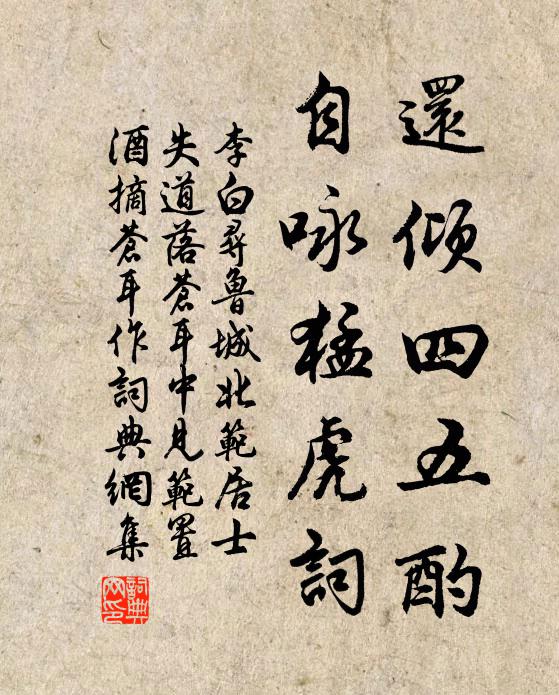 還傾四五酌
自咏猛虎詞
李白尋魯城北範居士
失道落蒼耳中見範置
酒摘蒼耳作詞典網集
詞典
网印